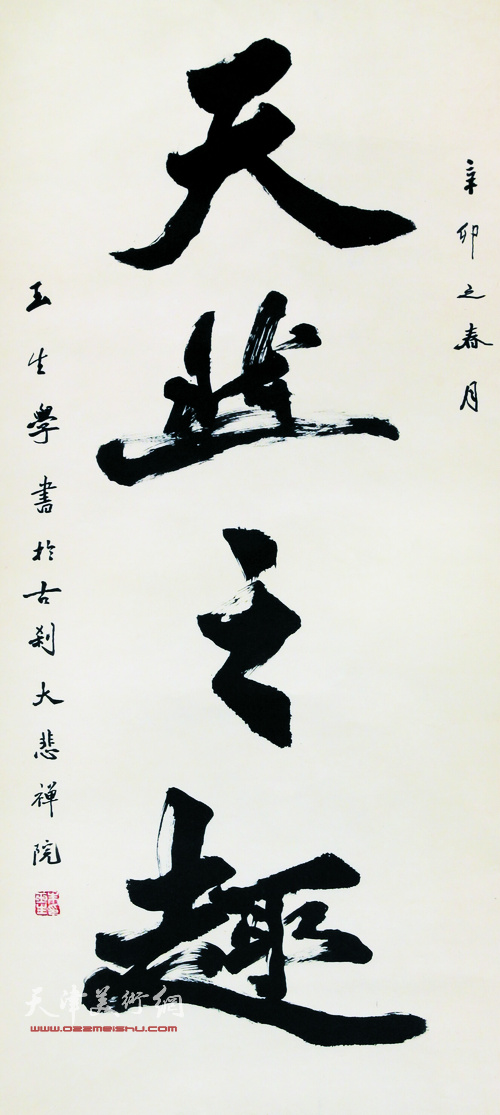 辛卯之春月
天然之趣
玉生學書於古刹大悲禪院
天津美術網
www.022meishu.com